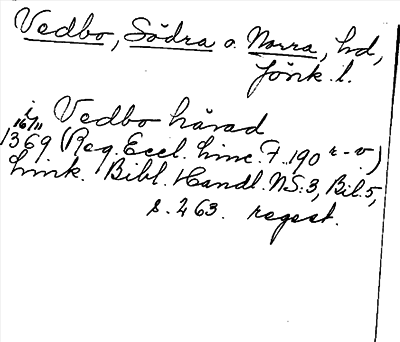 Vedbo, Södra o. Norra, hd,
Jönk. l.
i Vedbo härad
16/11
1369 (Reg. Eccl. Linc. F. 190 r-v.)
Link. Bibl. Handl. NS: 3, Bil. 5,
s. 263. regest.